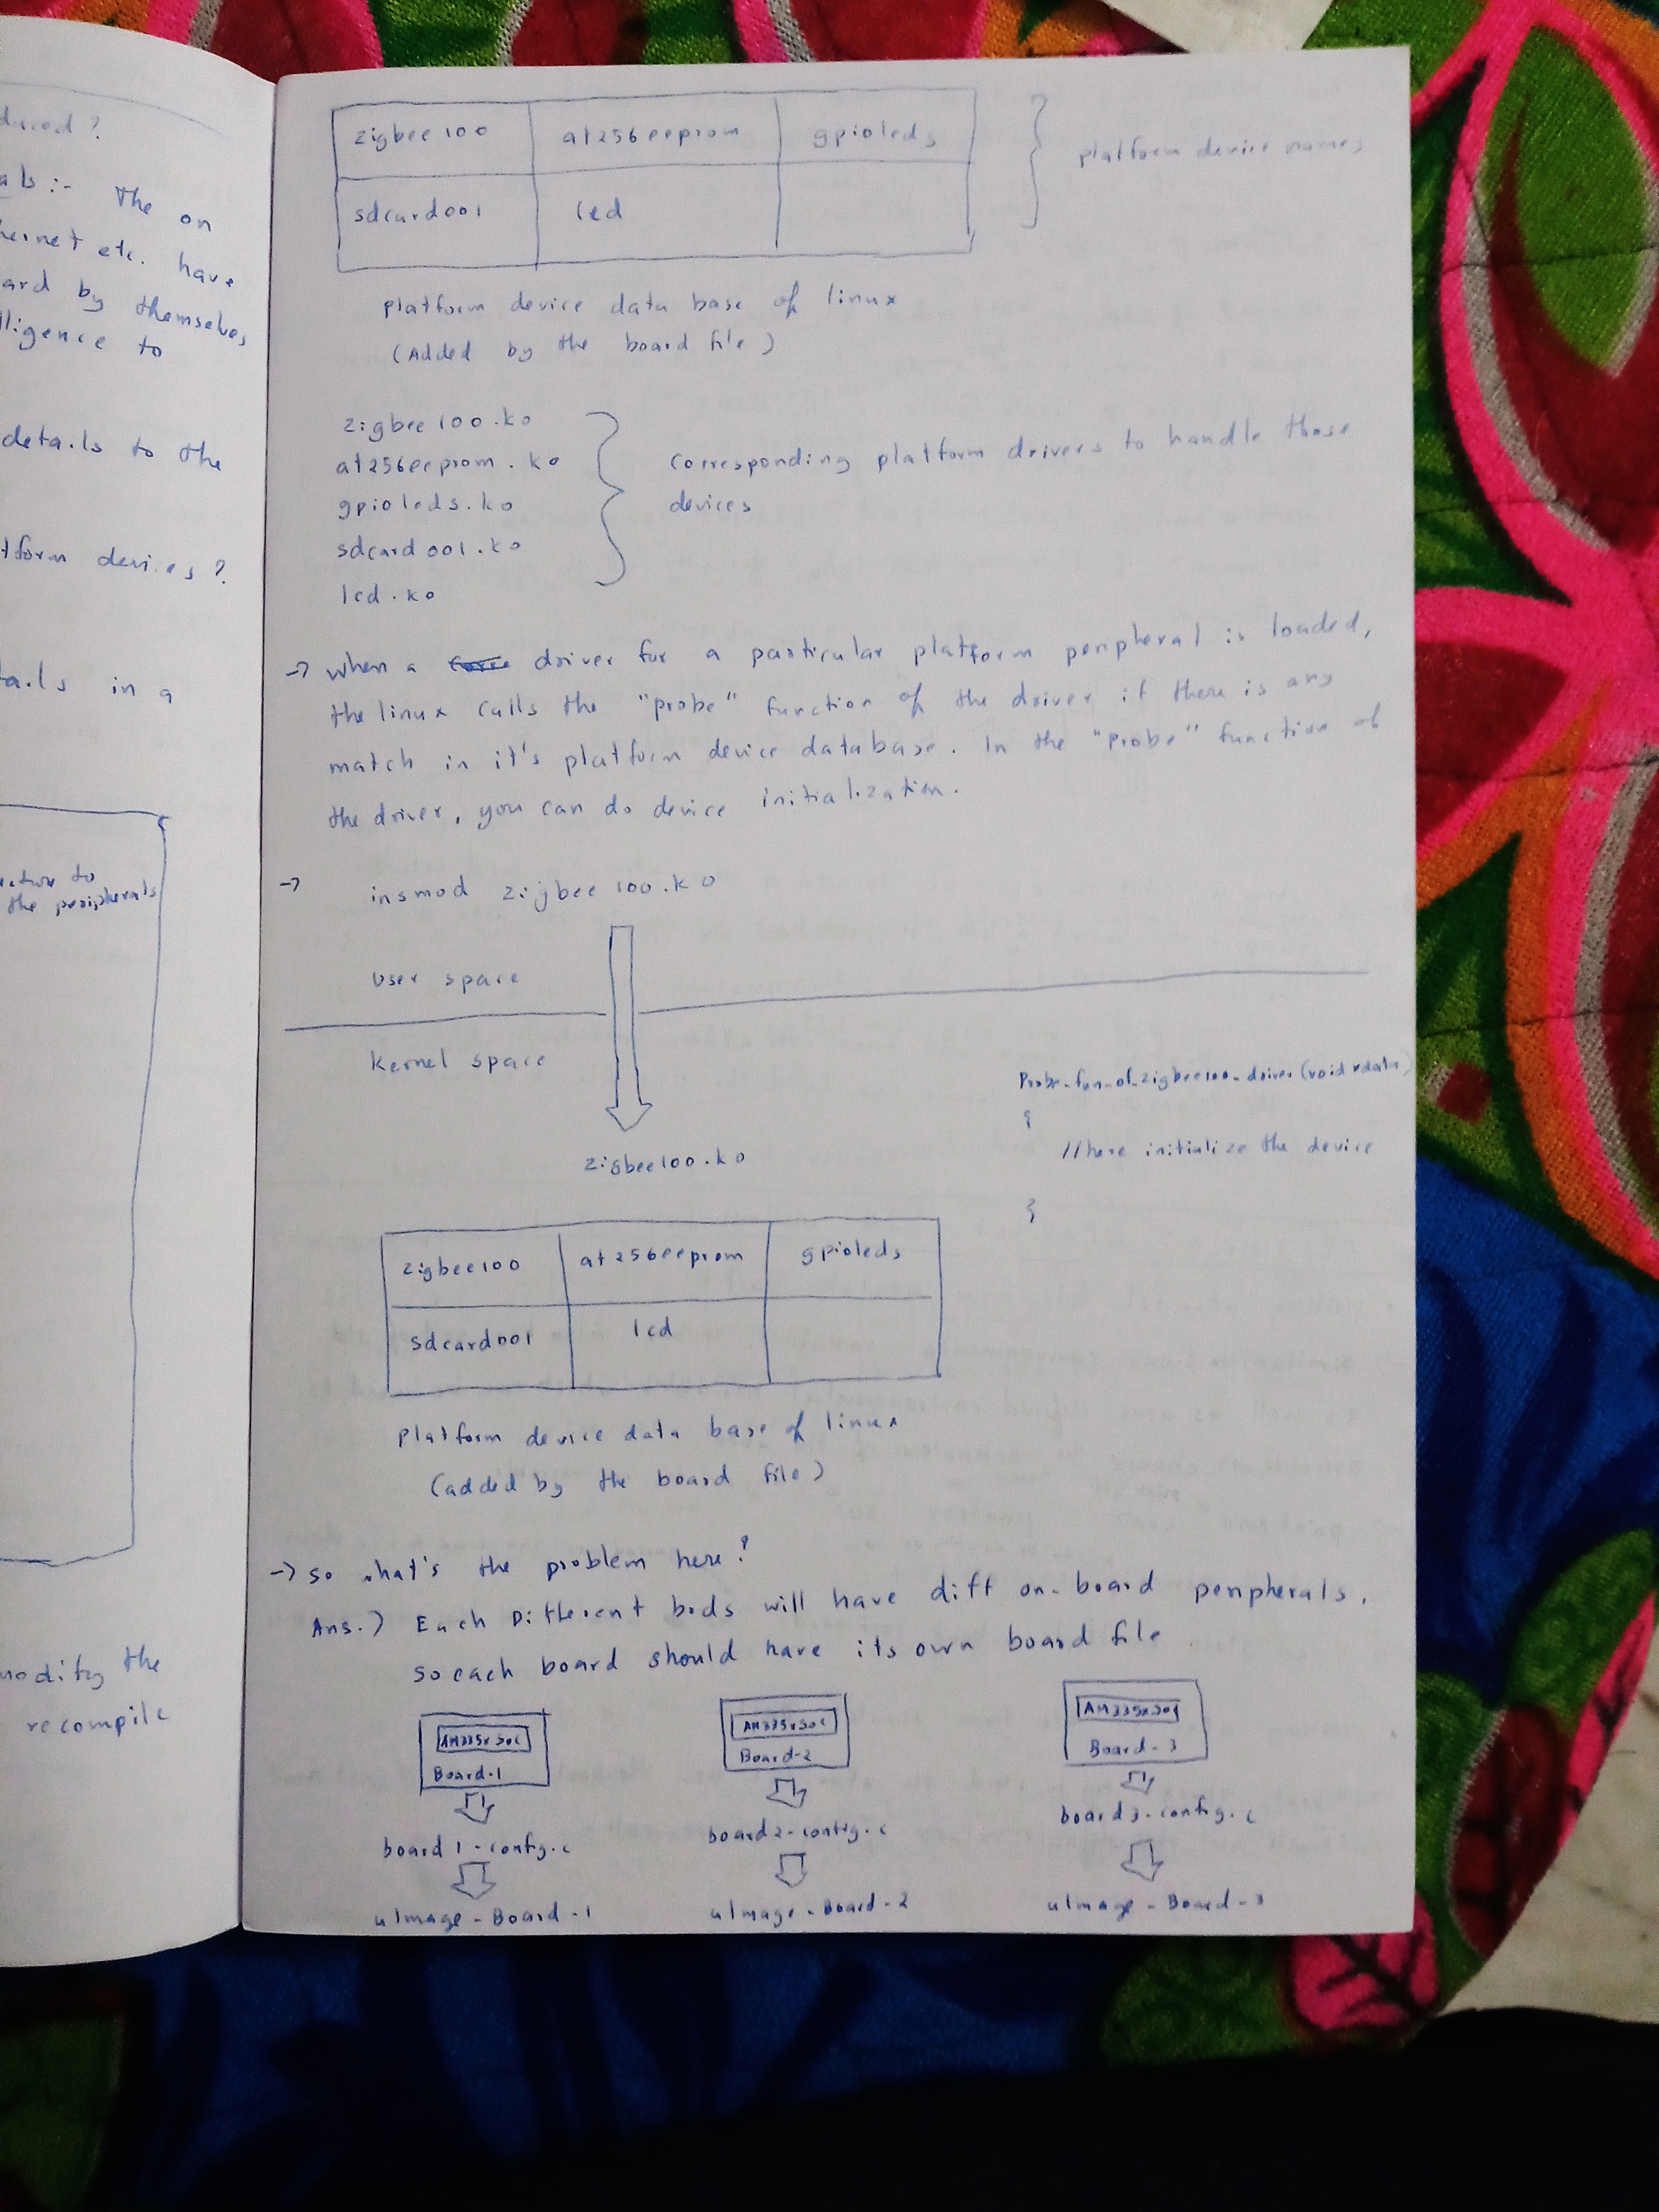 duced ?
als :- The on
hernet etc. have
ard by themselves
lligence to
details to the
tform devices ?
tails in a
the peripherals
modify the
recompile
zigbee100 at256eeprom gpioleds
sdcard001 lcd
} platform device names
platform device data base of linux
(Added by the board file)
zigbee100.ko
at256eeprom.ko
gpioleds.ko
sdcard001.ko
lcd.ko
} Corresponding platform drivers to handle those
devices
-> when a driver for a particular platform peripheral is loaded,
the linux calls the "probe" function of the driver if there is any
match in it's platform device database. In the "probe" function of
the driver, you can do device initialization.
-> insmod zigbee100.ko
User space
Kernel space
zigbee100.ko
Probe_fun_of_zigbee100_driver(void *data)
{
//here initialize the device
}
zigbee100 at256eeprom gpioleds
sdcard001 lcd
platform device data base of linux
(added by the board file)
-> so what's the problem here?
Ans.) Each Different bods will have diff on-board peripherals.
so each board should have its own board file
AM335x SOC AM335x SOC AM335x SOC
Board-1 Board-2 Board-3
board1-config.c board2-config.c board3-config.c
uImage-Board-1 uImage-Board-2 uImage-Board-3